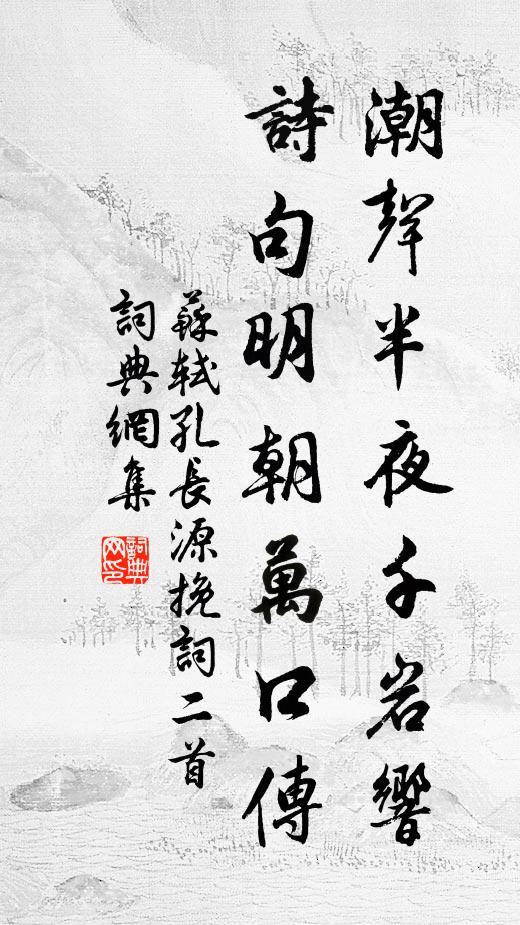 潮聲半夜千岩響
詩句明朝萬口傳
蘇軾孔長源挽詞二首
詞典網集
詞典网印